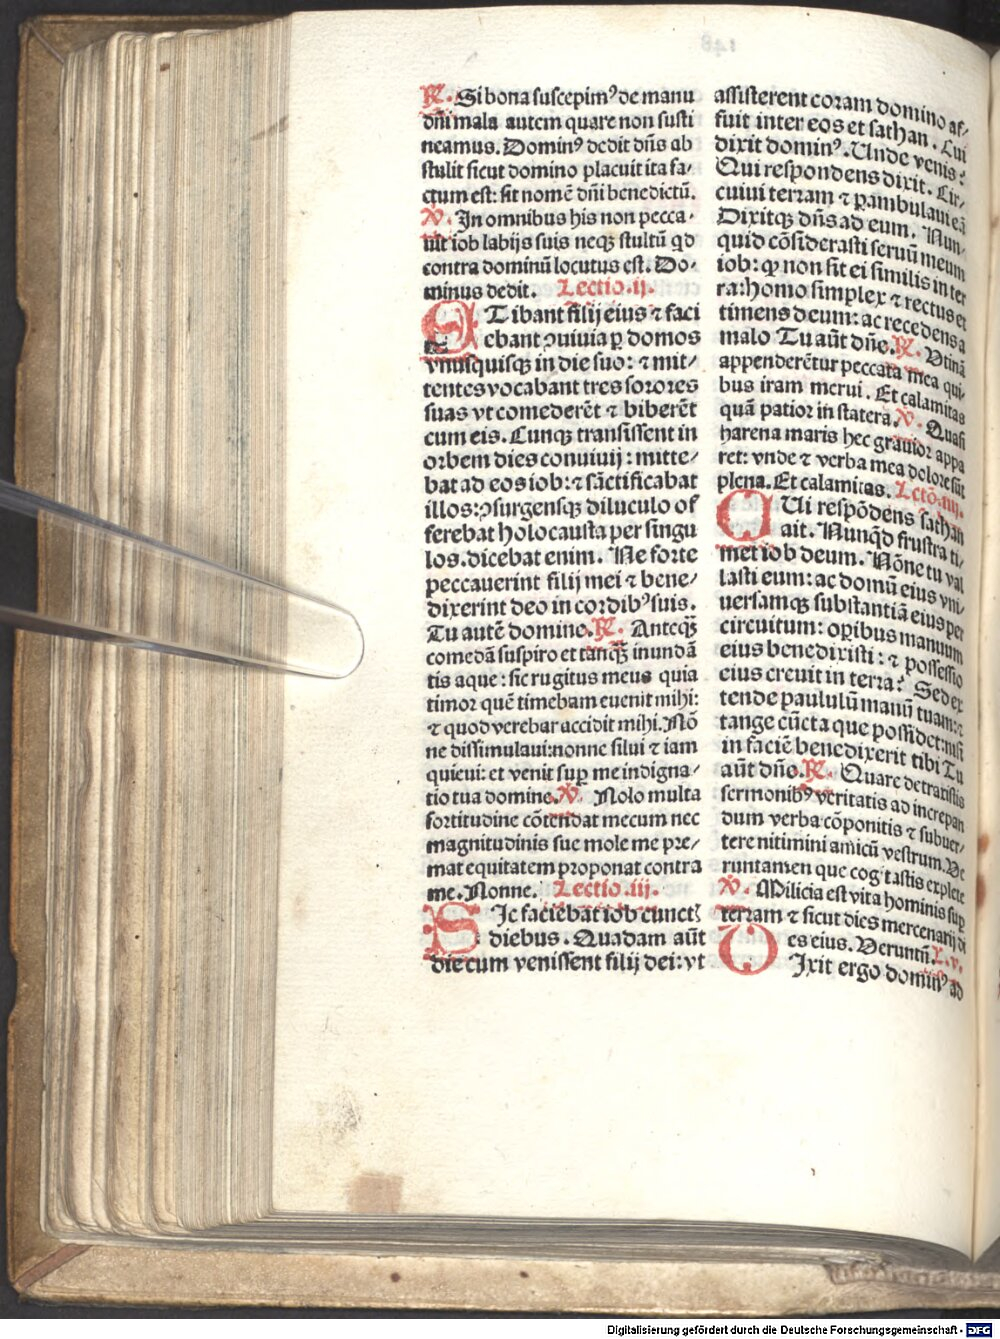 148
℟. Si bona suscepimꝰ de manu
dn̄i mala autem quare non susti
neamus. Dominꝰ dedit dn̄s ab
stulit sicut domino placuit ita fa⸗
ctum est: sit nomē dn̄i benedictū.
℣. In omnibus his non pecca⸗
uit iob labijs suis neqꝫ stultū qd
contra dominū locutus est. Do⸗
minus dedit. Lectio .ij.
ET ibant filij eius ⁊ faci
ebant ꝯuiuia ꝑ domos
vnusquisqꝫ in die suo: ⁊ mit⸗
tentes vocabant tres sorores
suas vt comederēt ⁊ biberēt
cum eis. Cunqꝫ transissent in
orbem dies conuiuij: mitte⸗
bat ad eos iob: ⁊ sāctificabat
illos: ꝯsurgensqꝫ diluculo of
ferebat holocausta per singu
los. dicebat enim. Ne forte
peccauerint filij mei ⁊ bene⸗
dixerint deo in cordibꝰ suis.
Tu autē domine. ℟. Anteqꝫ̄
comedā suspiro et tanqꝫ̄ inundā
tis aque: sic rugitus meus quia
timor quē timebam euenit mihi:
⁊ quod verebar accidit mihi. Nō
ne dissimulaui: nonne silui ⁊ iam
quieui: et venit suꝑ me indigna⸗
tio tua domine. ℣. Nolo multa
fortitudine cōtendat mecum nec
magnitudinis sue mole me pre⸗
mat equitatem proponat contra
me. Nonne. Lectio .iii.
SIc faciebat iob cunctꝭ
diebus. Quadam aūt
die cum venissent filij dei: vt
assisterent coram domino af⸗
fuit inter eos et sathan. Cui
dixit dominꝰ. Unde venis?
Qui respondens dixit. Cir⸗
cuiui terram ⁊ ꝑambulaui eā
Dixitqꝫ dn̄s ad eum. Nun⸗
quid cōsiderasti seruū meum
iob: ꝙ non sit ei similis in ter
ra: homo simplex ⁊ rectus et
timens deum: ac recedens a
malo Tu aūt dn̄e. ℟. Utinā
appenderētur peccata mea qui⸗
bus iram merui. Et calamitas
quā patior in statera. ℣. Quasi
harena maris hec grauior appa
ret: vnde ⁊ verba mea dolore sūt
plena. Et calamitas. Lectō .iiij.
QUi respōdens sathan
ait. Nunqd frustra ti⸗
met iob deum. Nōne tu val
lasti eum: ac domū eius vni⸗
uersamqꝫ substantiā eius per
circuitum: oꝑibus manuum
eius benedixisti: ⁊ possessio
eius creuit in terra? Sed ex
tende paululū manū tuam: ⁊
tange cūcta que possidet: nisi
in faciē benedixerit tibi Tu
aūt dn̄o. ℟. Quare detraxistis
sermonibꝰ veritatis ad increpan
dum verba cōponitis ⁊ subuer⸗
tere nitimini amicū vestrum. Ve
runtamen que cogitastis explete
℣. Milicia est vita hominis suꝑ
terram ⁊ sicut dies mercenarij di
es eius. Veruntn̄. L. v.
DIxit ergo dominꝰ ad
Digitalisierung gefördert durch die Deutsche Forschungsgemeinschaft - DFG